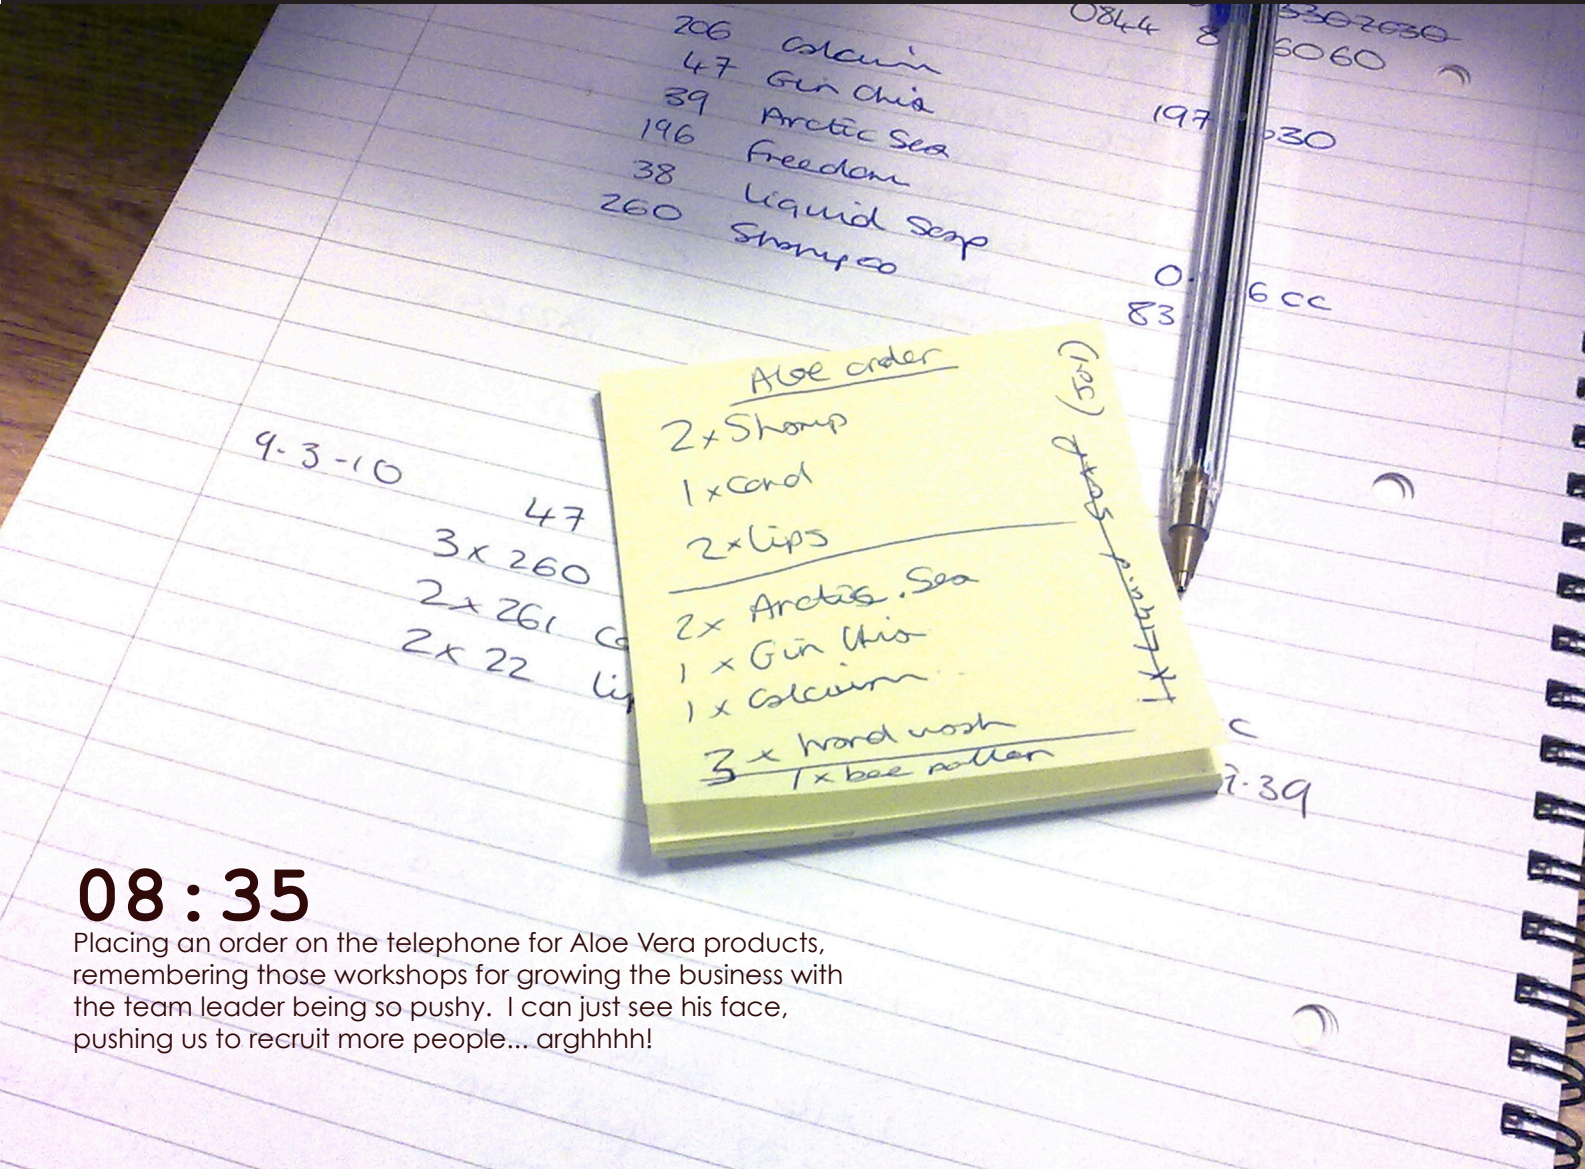 0844 8 6060
206 Calcium
47 Gin Chia
39 Arctic Sea
196 Freedom
38 Liquid Soap
260 Shampoo
197 030
0. 6 cc
83
9-3-10
47
3 x 260
2 x 261 Co
2 x 22 Lip
c
7.39
Aloe order
2 x Shamp
1 x Cond
2 x Lips
2 x Arctic Sea
1 x Gin Chia
1 x Calcium
3 x hand wash
1 x bee pollen
1 x Liquid Soap (Jon)
08:35
Placing an order on the telephone for Aloe Vera products,
remembering those workshops for growing the business with
the team leader being so pushy. I can just see his face,
pushing us to recruit more people... arghhhh!